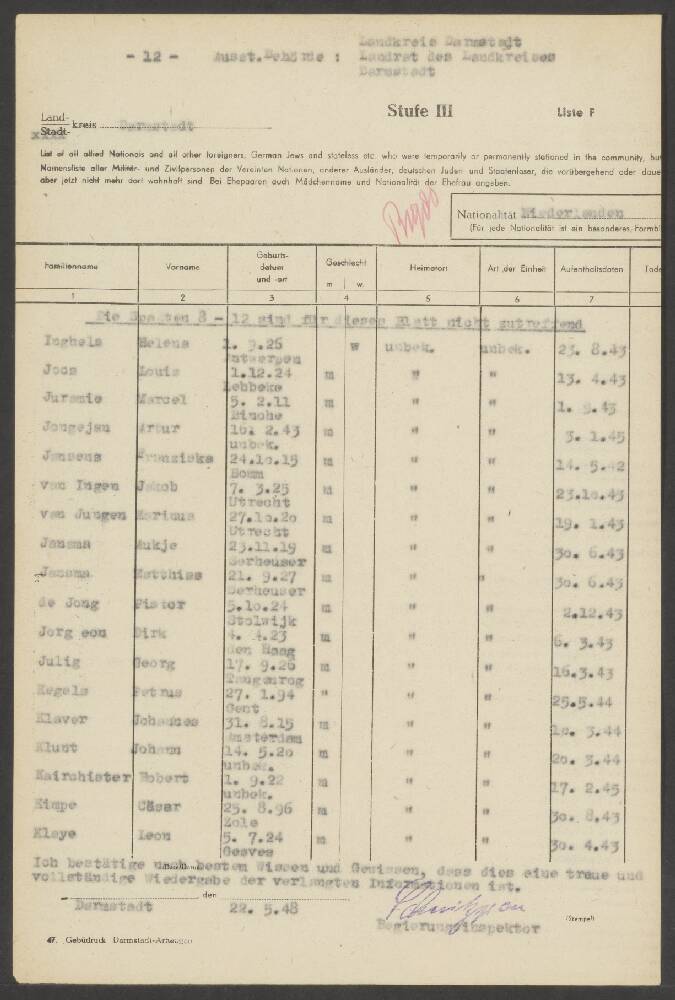 - 12 - Ausst.Behörde : Landkreis Darmstadt
Landrat des Landkreises
Darmstadt
Land-
Stadt- kreis Darmstadt
xxxx
Stufe III
Liste F
List of all allied Nationals and all other foreigners, German Jews and stateless etc. who were temporarily or permanently stationed in the community, but
Namensliste aller Militär- und Zivilpersonen der Vereinten Nationen, anderer Ausländer, deutschen Juden und Staatenloser, die vorübergehend oder daue
aber jetzt nicht mehr dort wohnhaft sind. Bei Ehepaaren auch Mädchenname und Nationalität der Ehefrau angeben.
Nationalität Niederlanden
(Für jede Nationalität ist ein besonderes Formbl
Familienname Vorname Geburts-datum und -ort Geschlecht m w. Heimatort Art der Einheit Aufenthaltsdaten Tode
1 2 3 4 5 6 7
Die Spalten 8 - 12 sind für dieses Blatt nicht zutreffend
Inghels Helena 1. 9.26 w unbek. unbek. 23. 8.43
Antwerpen
Joos Louis 1.12.24 m " " 13. 4.43
Lebbeke
Juramie Marcel 5. 2.11 m " " 1. 9.43
Binche
Jongejan Artur 16. 2.43 m " " 3. 1.45
unbek.
Jansens Franziska 24.10.15 m " " 14. 5.42
Boom
van Ingen Jakob 7. 3.25 m " " 23.10.43
Utrecht
van Jungen Marinus 27.10.20 m " " 19. 1.43
Utrecht
Jansma Aukje 23.11.19 m " " 30. 6.43
Serheuser
Jansma Matthias 21. 9.27 m " " 30. 6.43
Serheuser
de Jong Pistor 5.10.24 m " " 2.12.43
Stolwijk
Jorg eon Dirk 4. 4.23 m " " 6. 3.43
den Haag
Julig Georg 17. 9.26 m " " 16.3.43
Tangenrog
Kegels Petrus 27. 1.94 " " " 25.5.44
Gent
Klaver Johannes 31. 8.15 m " " 10. 3.44
Amsterdam
Klunt Johann 14. 5.20 m " " 20. 3.44
unbek.
Kairchister Robert 1. 9.22 m " " 17. 2.45
unbek.
Kimpe Cäsar 25. 8.96 m " " 30. 8.43
Zole
Klaye Leon 5. 7.24 m " " 30. 4.43
Gesves
Ich bestätige nach besten Wissen und Gewissen, dass dies eine treue und
vollständige Wiedergabe der verlangten Informationen ist.
Darmstadt den 22. 5.48
Regierungsinspektor
(Stempel)
47. Gebüdruck Darmstadt-Arheilgen